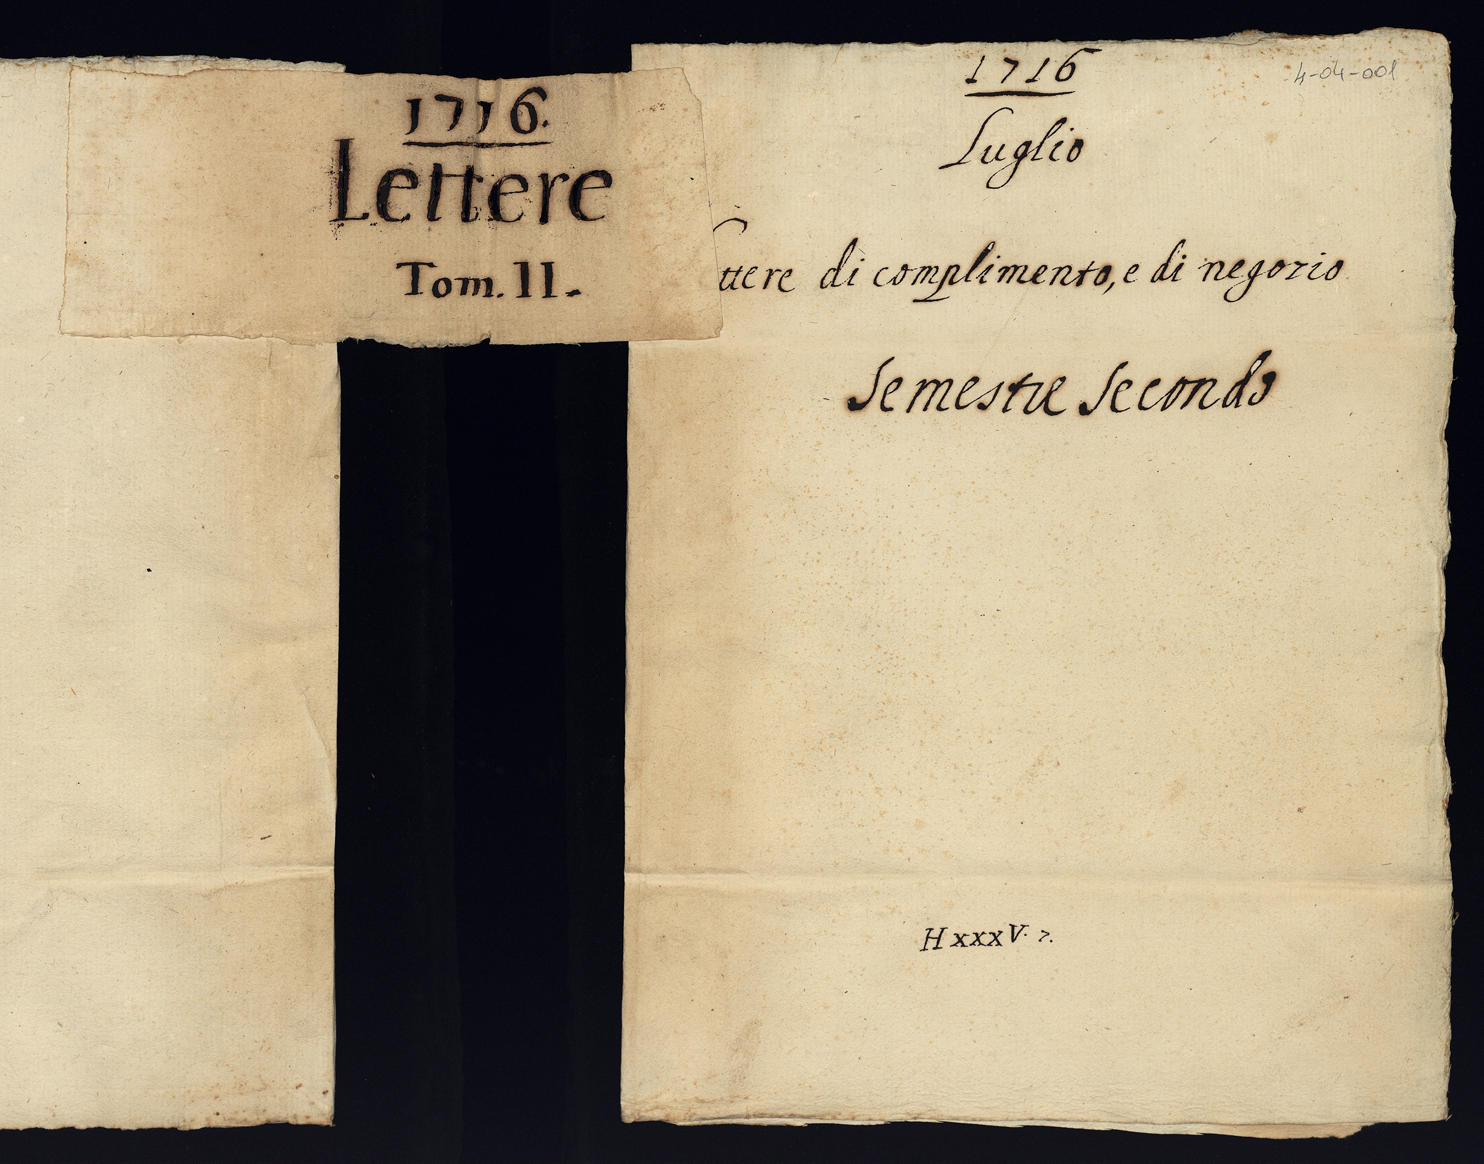 1716.
Lettere
Tom. II.
1716
4-04-001
Luglio
ttere di complimento, e di negozio
Semestre Secondo
H xxxV. 7.